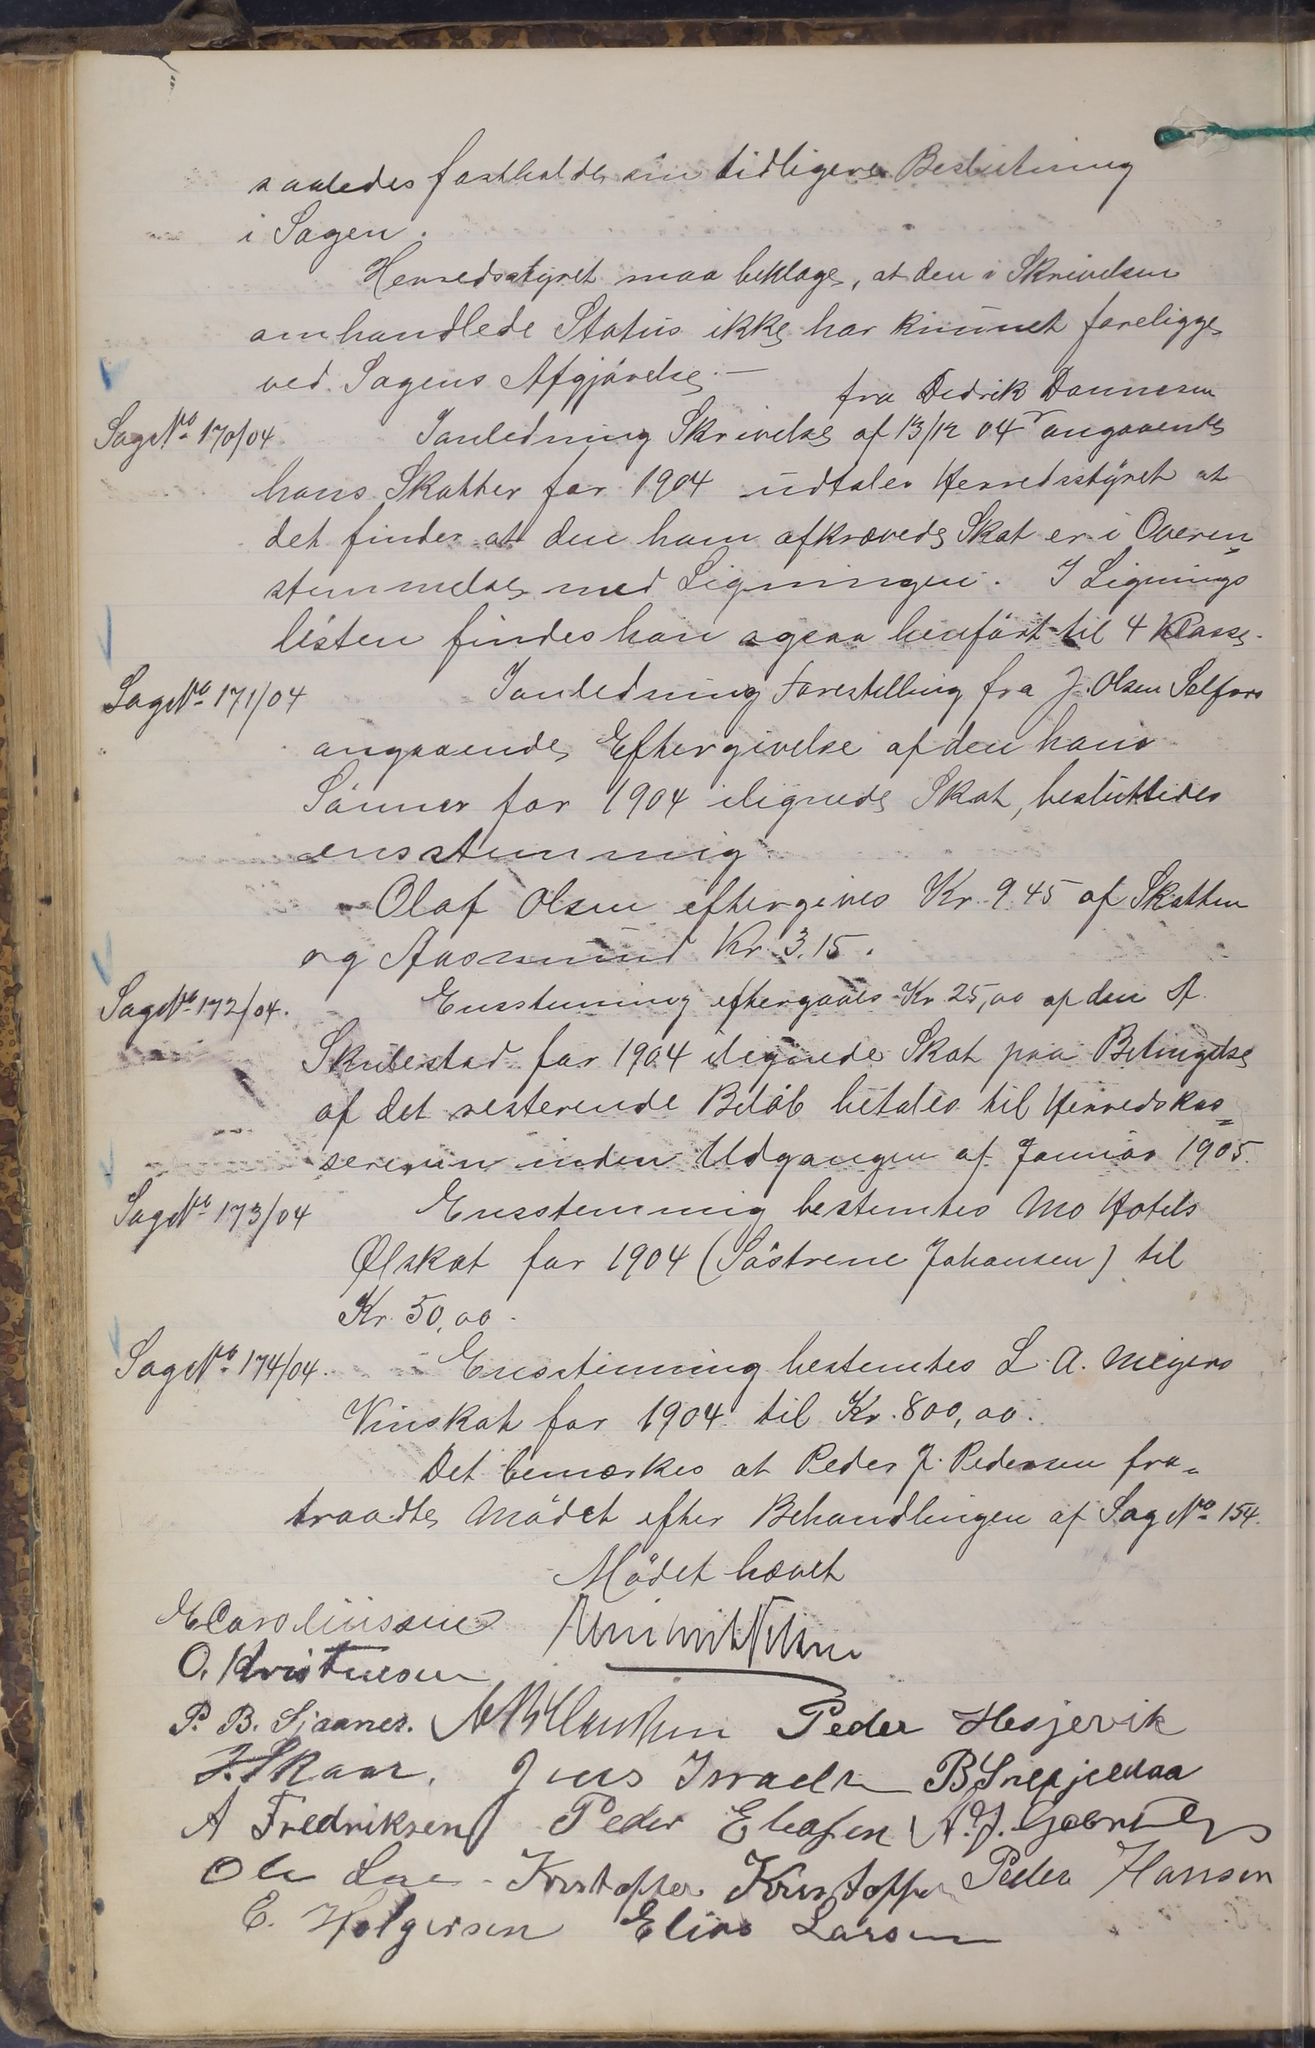 saaledes fastholde sin tidligere Beslutning
i Sagen.
Herredsstyret maa beklage, at den i Skrivelsen
omhandlede Status ikke har kunnet foreligge
ved Sagens Afgjörelse. —
fra Dedrik Dannesen
Sag No 170/04 Ianledning Skrivelse af 13/12 04 angaaende
hans Skatter for 1904 udtaler Herredsstyret at
det finder at den ham afkrævede Skat er i Overen„
stemmelse med Ligningen. I Lignings
listen findes han ogsaa henfört til 4 Klasse.
Sag No 171/04 Ianledning Forestilling fra J. Olsen Selfors
angaaende Eftergivelse af den hans
Sönner for 1904 ilignede Skat, besluttedes
ensstemmig
Olaf Olsen eftergives Kr. 9.45 af Skatten
og Aasmund Kr. 3.15.
Sag No 172/04. Ensstemmig eftergaves Kr. 25,00 af den A.
Skulestad for 1904 ilignede Skat paa Betingelse
af det resterende Belöb betales til Herredskas„
sereren inden Udgangen af Januar 1905.
Sag No 173/04 Ensstemmig bestemtes Mo Hotels
Ølskat for 1904 (Söstrene Johansen) til
Kr. 50,00.
Sag No 174/04. Ensstemmig bestemtes L. A. Meyers
Vinskat for 1904 til Kr. 800,00.
Det bemærkes at Peder J. Pedersen fra„
traadte Mödet efter Behandlingen af Sag No 154.
Mödet hævet
E Caroliussen
O. Kristensen
P. B. Sjaaner. Peder Hesjevik
J. Skaar. Jens Israels
A Fredriksen Peder Eliasen A. J. Gabriels
Ole Kristoffer Kristoffer Peder Hansen
E. Holgersen Elias Larsen